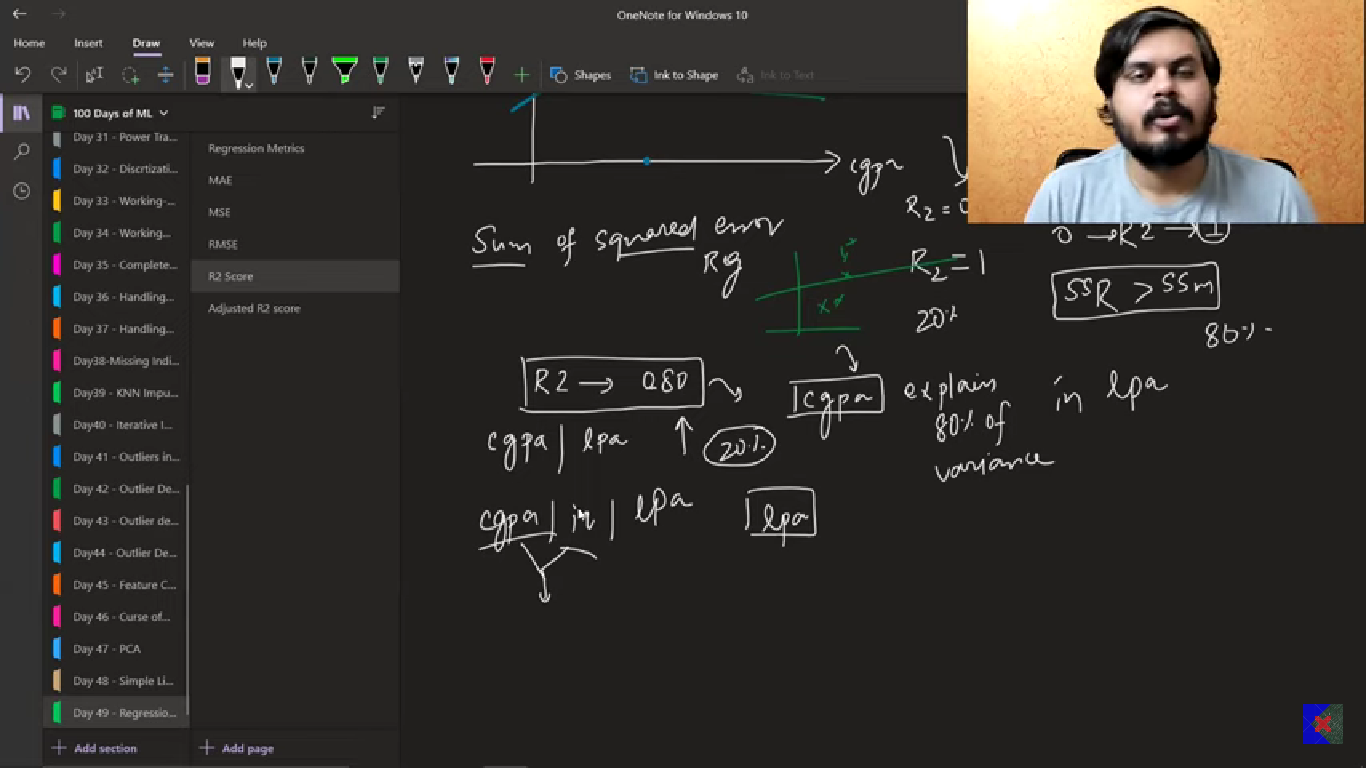 OneNote for Windows 10
Home Insert Draw View Help
Shapes Ink to Shape Ink to Text
100 Days of ML
Day 31 - Power Tra...
Day 32 - Discrtizati...
Day 33 - Working-...
Day 34 - Working...
Day 35 - Complete...
Day 36 - Handling...
Day 37 - Handling...
Day38-Missing Indi...
Day39 - KNN Impu...
Day40 - Iterative I...
Day 41 - Outliers in...
Day 42 - Outlier De...
Day 43 - Outlier de...
Day44 - Outlier De...
Day 45 - Feature C...
Day 46 - Curse of...
Day 47 - PCA
Day 48 - Simple Li...
Day 49 - Regressio...
Add section
Regression Metrics
MAE
MSE
RMSE
R2 Score
Adjusted R2 score
Add page
cgpa
R2 = 0
Sum of squared error
Reg
R2 = 1
20%
0 → R2 → 1
SSR > SSm
80%
R2 → 0.80
cgpa explains in lpa
80% of
variance
cgpa | lpa
20%
cgpa | in | lpa
lpa